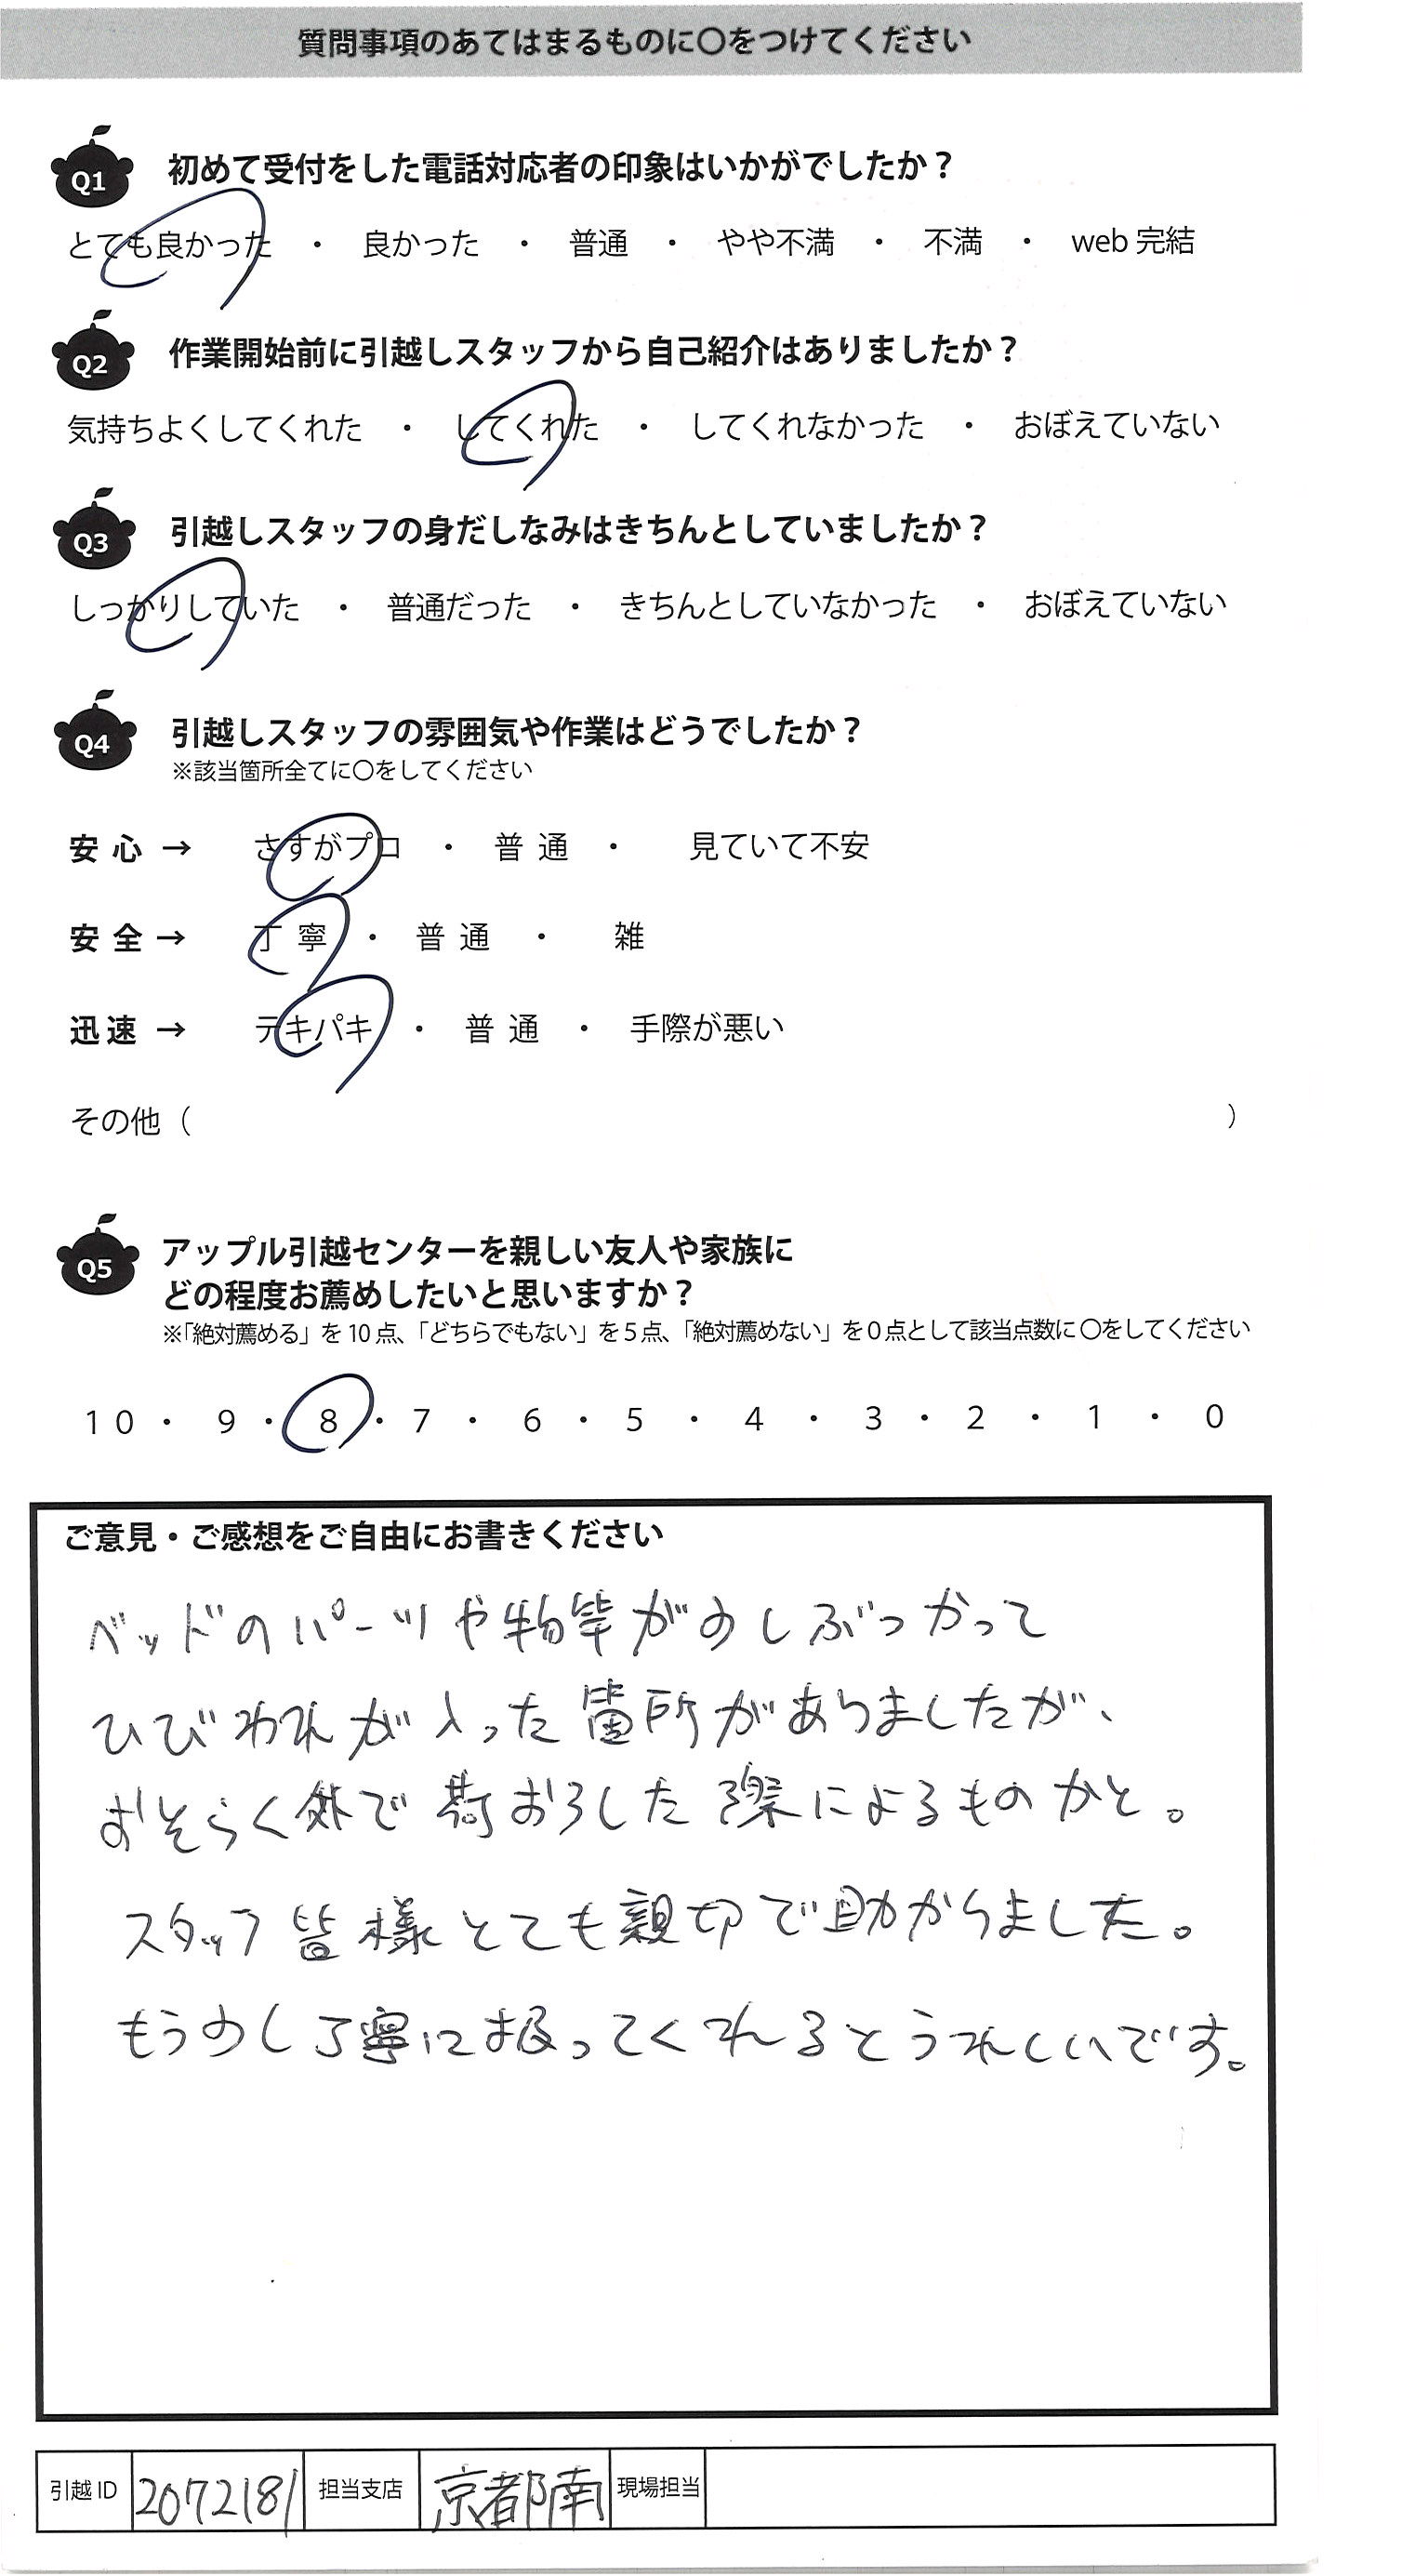 質問事項のあてはまるものに〇をつけてください
Q1 初めて受付をした電話対応者の印象はいかがでしたか？
とても良かった ・ 良かった ・ 普通 ・ やや不満 ・ 不満 ・ web 完結
Q2 作業開始前に引越しスタッフから自己紹介はありましたか？
気持ちよくしてくれた ・ してくれた ・ してくれなかった ・ おぼえていない
Q3 引越しスタッフの身だしなみはきちんとしていましたか？
しっかりしていた ・ 普通だった ・ きちんとしていなかった ・ おぼえていない
Q4 引越しスタッフの雰囲気や作業はどうでしたか？
※該当箇所全てに〇をしてください
安心 → さすがプロ ・ 普通 ・ 見ていて不安
安全 → 丁寧 ・ 普通 ・ 雑
迅速 → テキパキ ・ 普通 ・ 手際が悪い
その他（ ）
Q5 アップル引越センターを親しい友人や家族に
どの程度お薦めしたいと思いますか？
※「絶対薦める」を10点、「どちらでもない」を5点、「絶対薦めない」を0点として該当点数に〇をしてください
10 ・ 9 ・ 8 ・ 7 ・ 6 ・ 5 ・ 4 ・ 3 ・ 2 ・ 1 ・ 0
ご意見・ご感想をご自由にお書きください
ベッドのパーツや物竿が少しぶつかって
ひびわれが入った箇所がありましたが、
おそらく外で荷おろした際によるものかと。
スタッフ皆様とても親切で助かりました。
もう少し丁寧に扱ってくれるとうれしいです。
引越ID 2072181 担当支店 京都南 現場担当